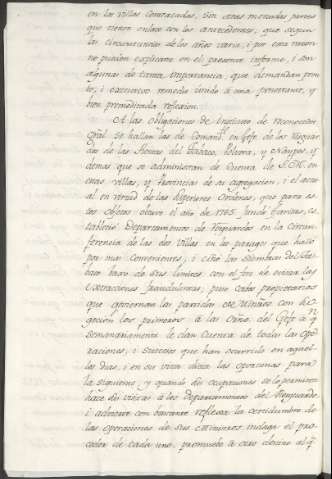 en las villas comarcadas, son otras menudas partes
que tienen enlace con los antecedentes, que segun
las circunstancias de los años varia, i por esta razon
no pueden explicarse en el presente informe, i son
algunas de tanta importancia, que demandan prom
to, i executivo remedio unido á una penetrante, y
bien premeditada reflexion.
A las obligaciones de Instituto de
se hallan las de Comand.te en Gefe de los Resguar
dos de las Rentas del Tabaco, Polvora, y Naypes, y
demas que se administran de cuenta de S.M. en
estas villas, y Provincias de su agregacion, i el actu
al en virtud de las superiores ordenes, que para es
tos obtuvo el año de 1785
tableció Departamentos de Resguardos en la circun
ferencia de las dos Villas en los parages que halló
por mas convenientes, i ciñó las siembras del Ta
baco baxo de sus limites con el fin de evitar las
extracciones fraudulentas; pero estos
que goviernan las partidas de Ministros con
los primeros á las del Gefe á q.n
semanariamente le dan cuenta de todas las ope
raciones, i sucesos que han ocurrido en aquel
los dias, i en su vista dicta las oportunas para
la siguiente, y quando sus ocupaciones se lo permiten
hace sus visitas á los Departamentos del Resguardo,
i adquiere con bastante reflexa la certidumbre de
las operaciones de sus Ministros, indaga el pro
ceder de cada uno, promueve á otro destino al q.e